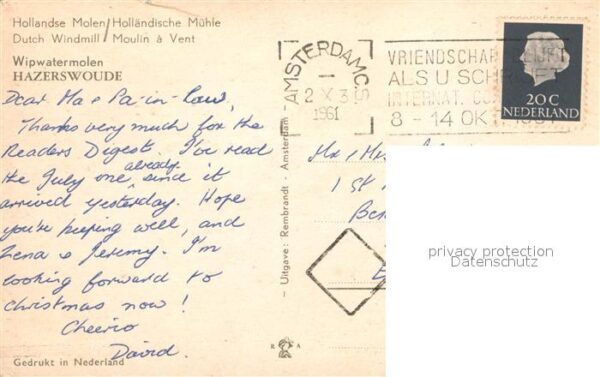 Hollandse Molen/Holländische Mühle
Dutch Windmill/Moulin à Vent
Wipwatermolen
HAZERSWOUDE
Dear Ma & Pa-in-law,
Thanks very much for the
Readers Digest. I've read
the July one already since it
arrived yesterday. Hope
you're keeping well, and
Lena & Jeremy. I'm
looking forward to
Christmas now!
Cheerio
David.
Gedrukt in Nederland
- Uitgave: Rembrandt - Amsterdam -
R A
AMSTERDAM C.S
2 X 3
1961
VRIENDSCHAP
ALS U SCHR
INTERNAT.
8 - 14 OKT.
20 C
NEDERLAND
Mr & Mrs
1 St
Ben
privacy protection
Datenschutz